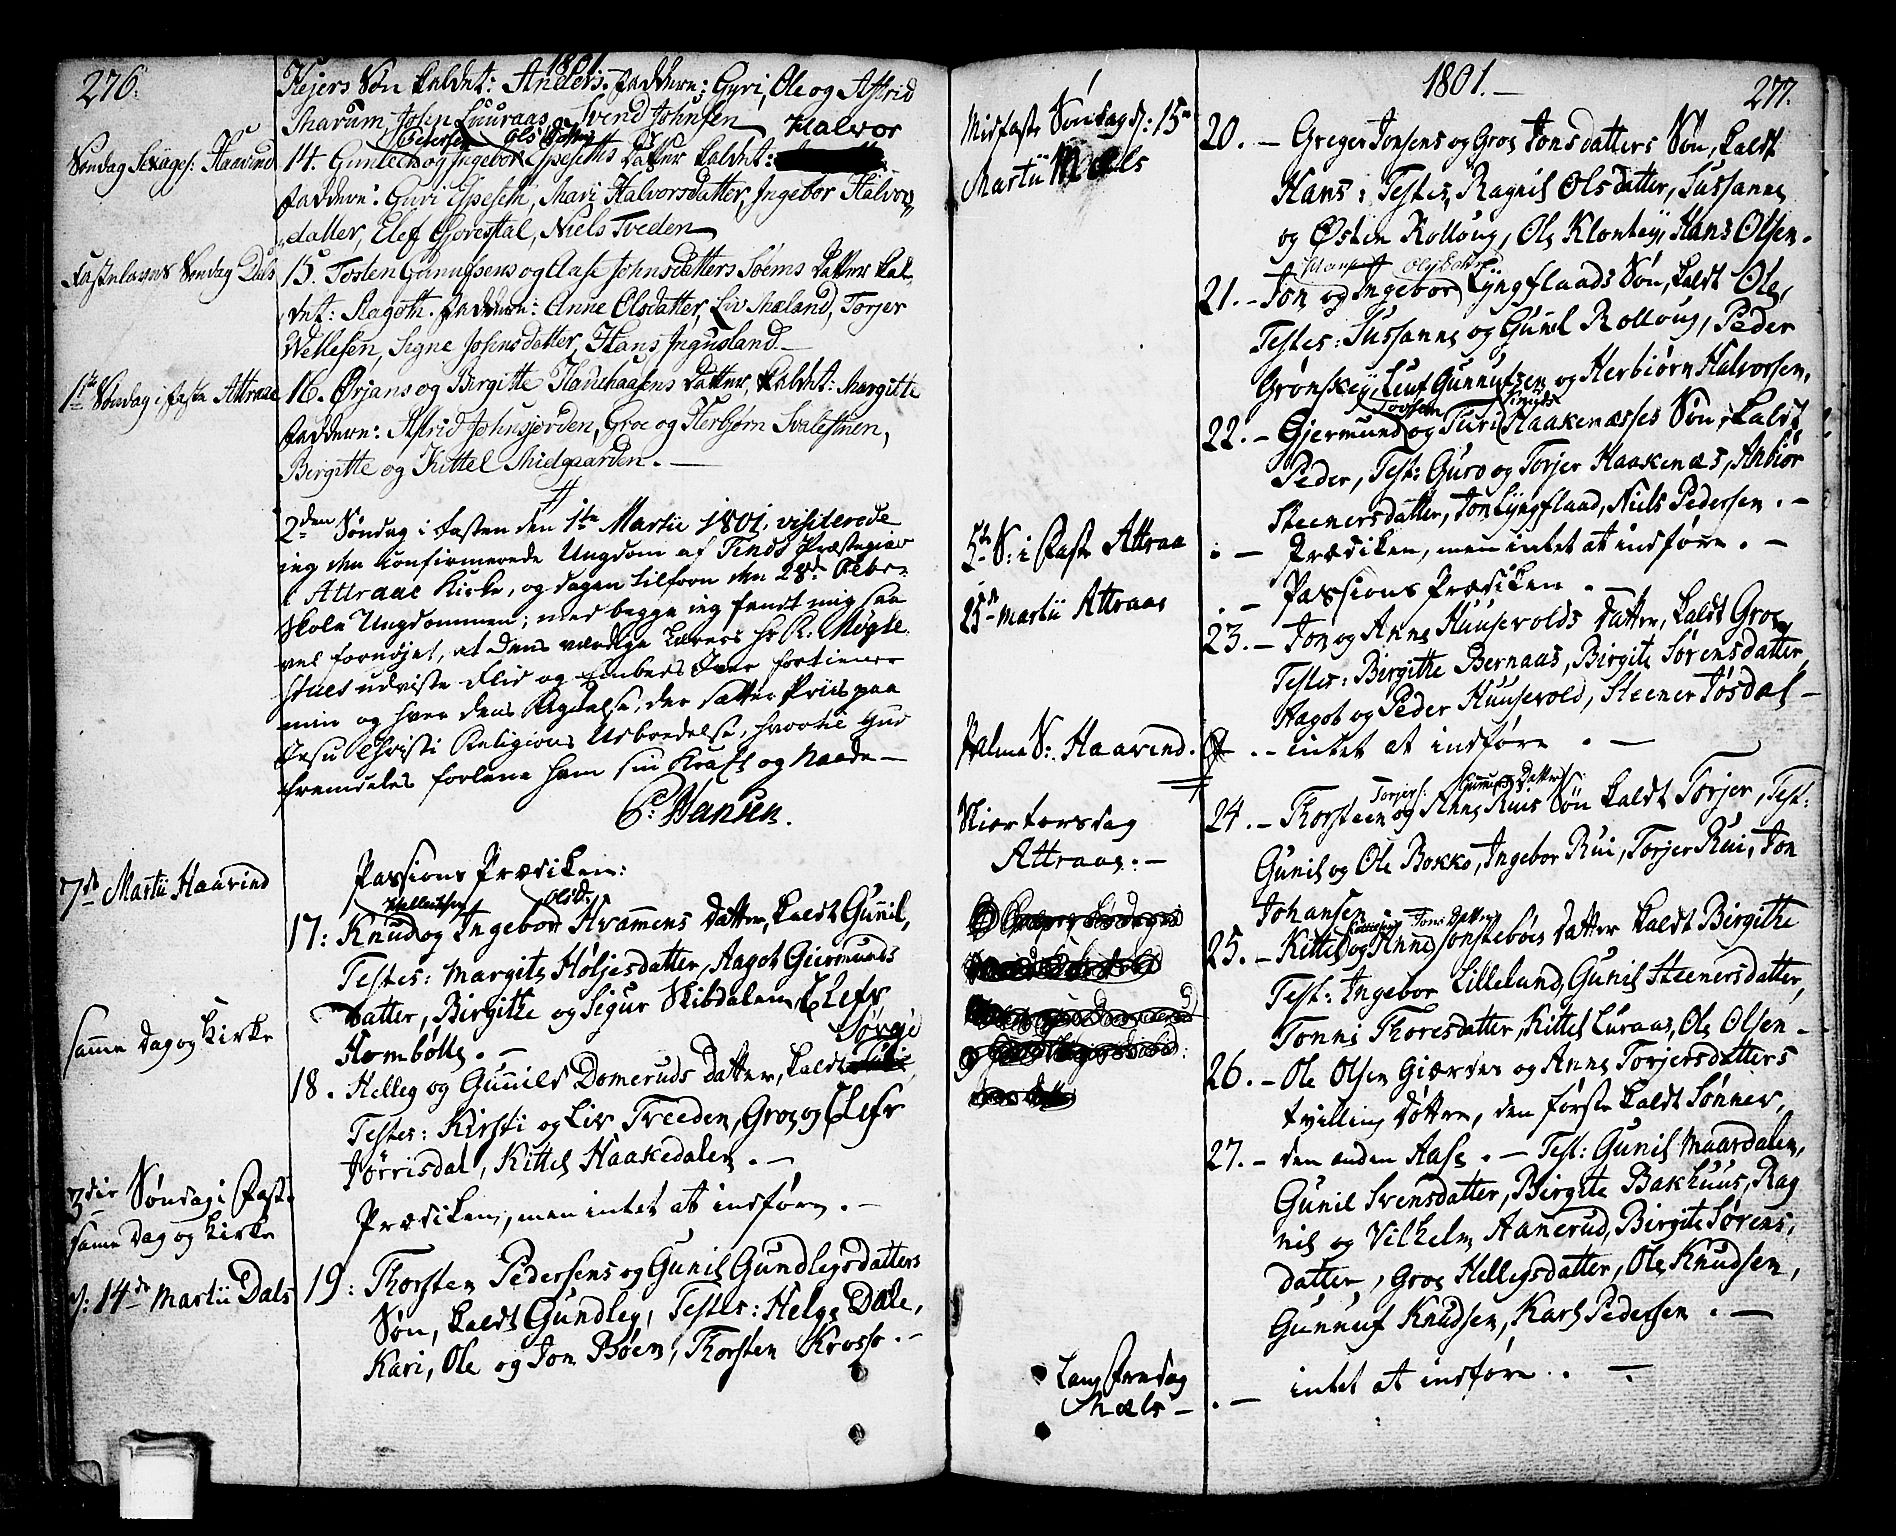 276.
1801
Kejers Søn kaldet: Anders. Faddere: Gyri, Ole og Astrid
Marum, Josep Luuraas, Svend Johnsen
Pedersen Ols Datter Halvor
Søndag Sexages: Haavind
14. Gunleck og Ingebor Espeseths Datter kaldet:
Faddere: Guri Espeseth, Mari Halvorsdatter, Ingebor Halvors
datter, Elef Gjorestal, Niels Tveden
Fastelavns Søndag Dals
15. Tosten Gunufsens og Aase Johnsdatters Søems Datter kal-
det: Aagoth. Faddere: Anne Olsdatter, Liv Mæland, Torjer
Wettesen, Signe Johnsdatter, Hans Ingusland
1te Søndag i faste Attraae
16. Ørjans og Birgitte Haukaasens Datter, kaldet: Margitte
Faddere: Astrid Johnsjorden, Groe og Herbjørn Svalestuen,
Birgitte og Kittel Midgaarden.
2den Søndag i Fasten den 1te Martii 1801, visiterede
jeg den confirmerede Ungdom af Tinds Præstegiæld
i Attraae Kirke, og dagen tilforn den 28de Febr.
Skole Ungdommen; med begge jeg fandt mig saa
vel fornøjet, at Dens værdige Lærers Hr R. Mögle
stues udviste Flid og Embeds Iver fortiener
min og hver dens Agtelse, der sætter Priis paa
Jesu Christi Religions Udbredelse, hvortil Gud
fremdeles forlene ham sin Kraft og Naade
P. Hansen.
7de Martii Haavind
Passions Prædiken:
Helleiksen Olsd:
17: Knud og Ingebor Hvammens Datter, kaldt Gunil,
Testes: Margit Høljesdatter, Aagot Giermunds
datter, Birgithe og Sigur Skibdalen, Elefr
Hombölle.
samme Dag og Kirke
Sørgie
18. Helleg og Gunnild Domeruds Datter, kaldt
Testes: Kirsti og Liv Treeden, Groe og Elefr
Jørrisdal, Kittel Haakedalen.
3die Søndag i Faste
same Dag og Kirke
Prædiken, men intet at indføre.
d: 14de Martii Dals
19: Thorsten Pedersens og Gunil Gundlegsdatters
Søn, kaldt Gundleg, Testes: Helge Dale,
Kari, Ole og Jon Bøen, Thorsten Krosso.
1801.
277.
Midfaste Søndag d: 15de
Martii Mæls
20. Greger Jonsens og Groe Jonsdatters Søn, kaldt
Hans: Testes, Ragnil Olsdatter, Sussanne
og Østen Rolloug, Ole Klontey, Hans Olsen.
Olsdatter
21. Jon og Ingebor Lyngflaads Søn, kaldt Ole,
Testes: Sussanne og Gunil Rolloug, Peder
Grønskey, Leuf Gunnufsen og Herbiørn Halvorsen,
Tovsen Knuds
22. Gjermund og Turi Haakenæsses Søn, kaldt
Peder, Test: Guro og Torjer Haakenæs, Anbiør
Steenersdatter, Jon Lyngflaad, Niels Pedersen.
5te S: i Faste Attraa
Prædiken, men intet at indføre.
25de Martii Attraae
Passions Prædiken.
23. Jon og Anne Huusevolds Datter, kaldt Groe,
Testes: Birgithe Bernaas, Birgite Sørensdatter,
Aagot og Peder Huusevold, Steener Jøsdal
Palme S: Haavind.
intet at indføre.
Skiertorsdag
Attraae.
Torjers: Gunnufs Datter
24. Thorsteen og Anne Ruis Søn kaldt Torjer, Test:
Gunil og Ole Bokko, Ingebor Rui, Torjer Rui, Jon
Johansen
Jons Datter
25. Kittel og Anne Jonstebøes Datter kaldt Birgithe
Test: Ingebor Lillelund, Gunil Steenersdatter,
Tonne Thoresdatter, Kittel Luraas, Ole Olsen
26. Ole Olsen Giærdes og Anne Torjersdatters
tvilling Døttre, den første kaldt Sønnev,
27. den anden Aase. Test: Gunil Maardalen,
Gunil Svensdatter, Birgite Bakhuus, Rag
nil og Vilhelm Aanerud, Birgite Sørens
datter, Groe Hellegsdatter, Ole Knudsen,
Gunnuf Knudsen, Karl Pedersen.
Lang Fredag
Mæls
intet at indføre.